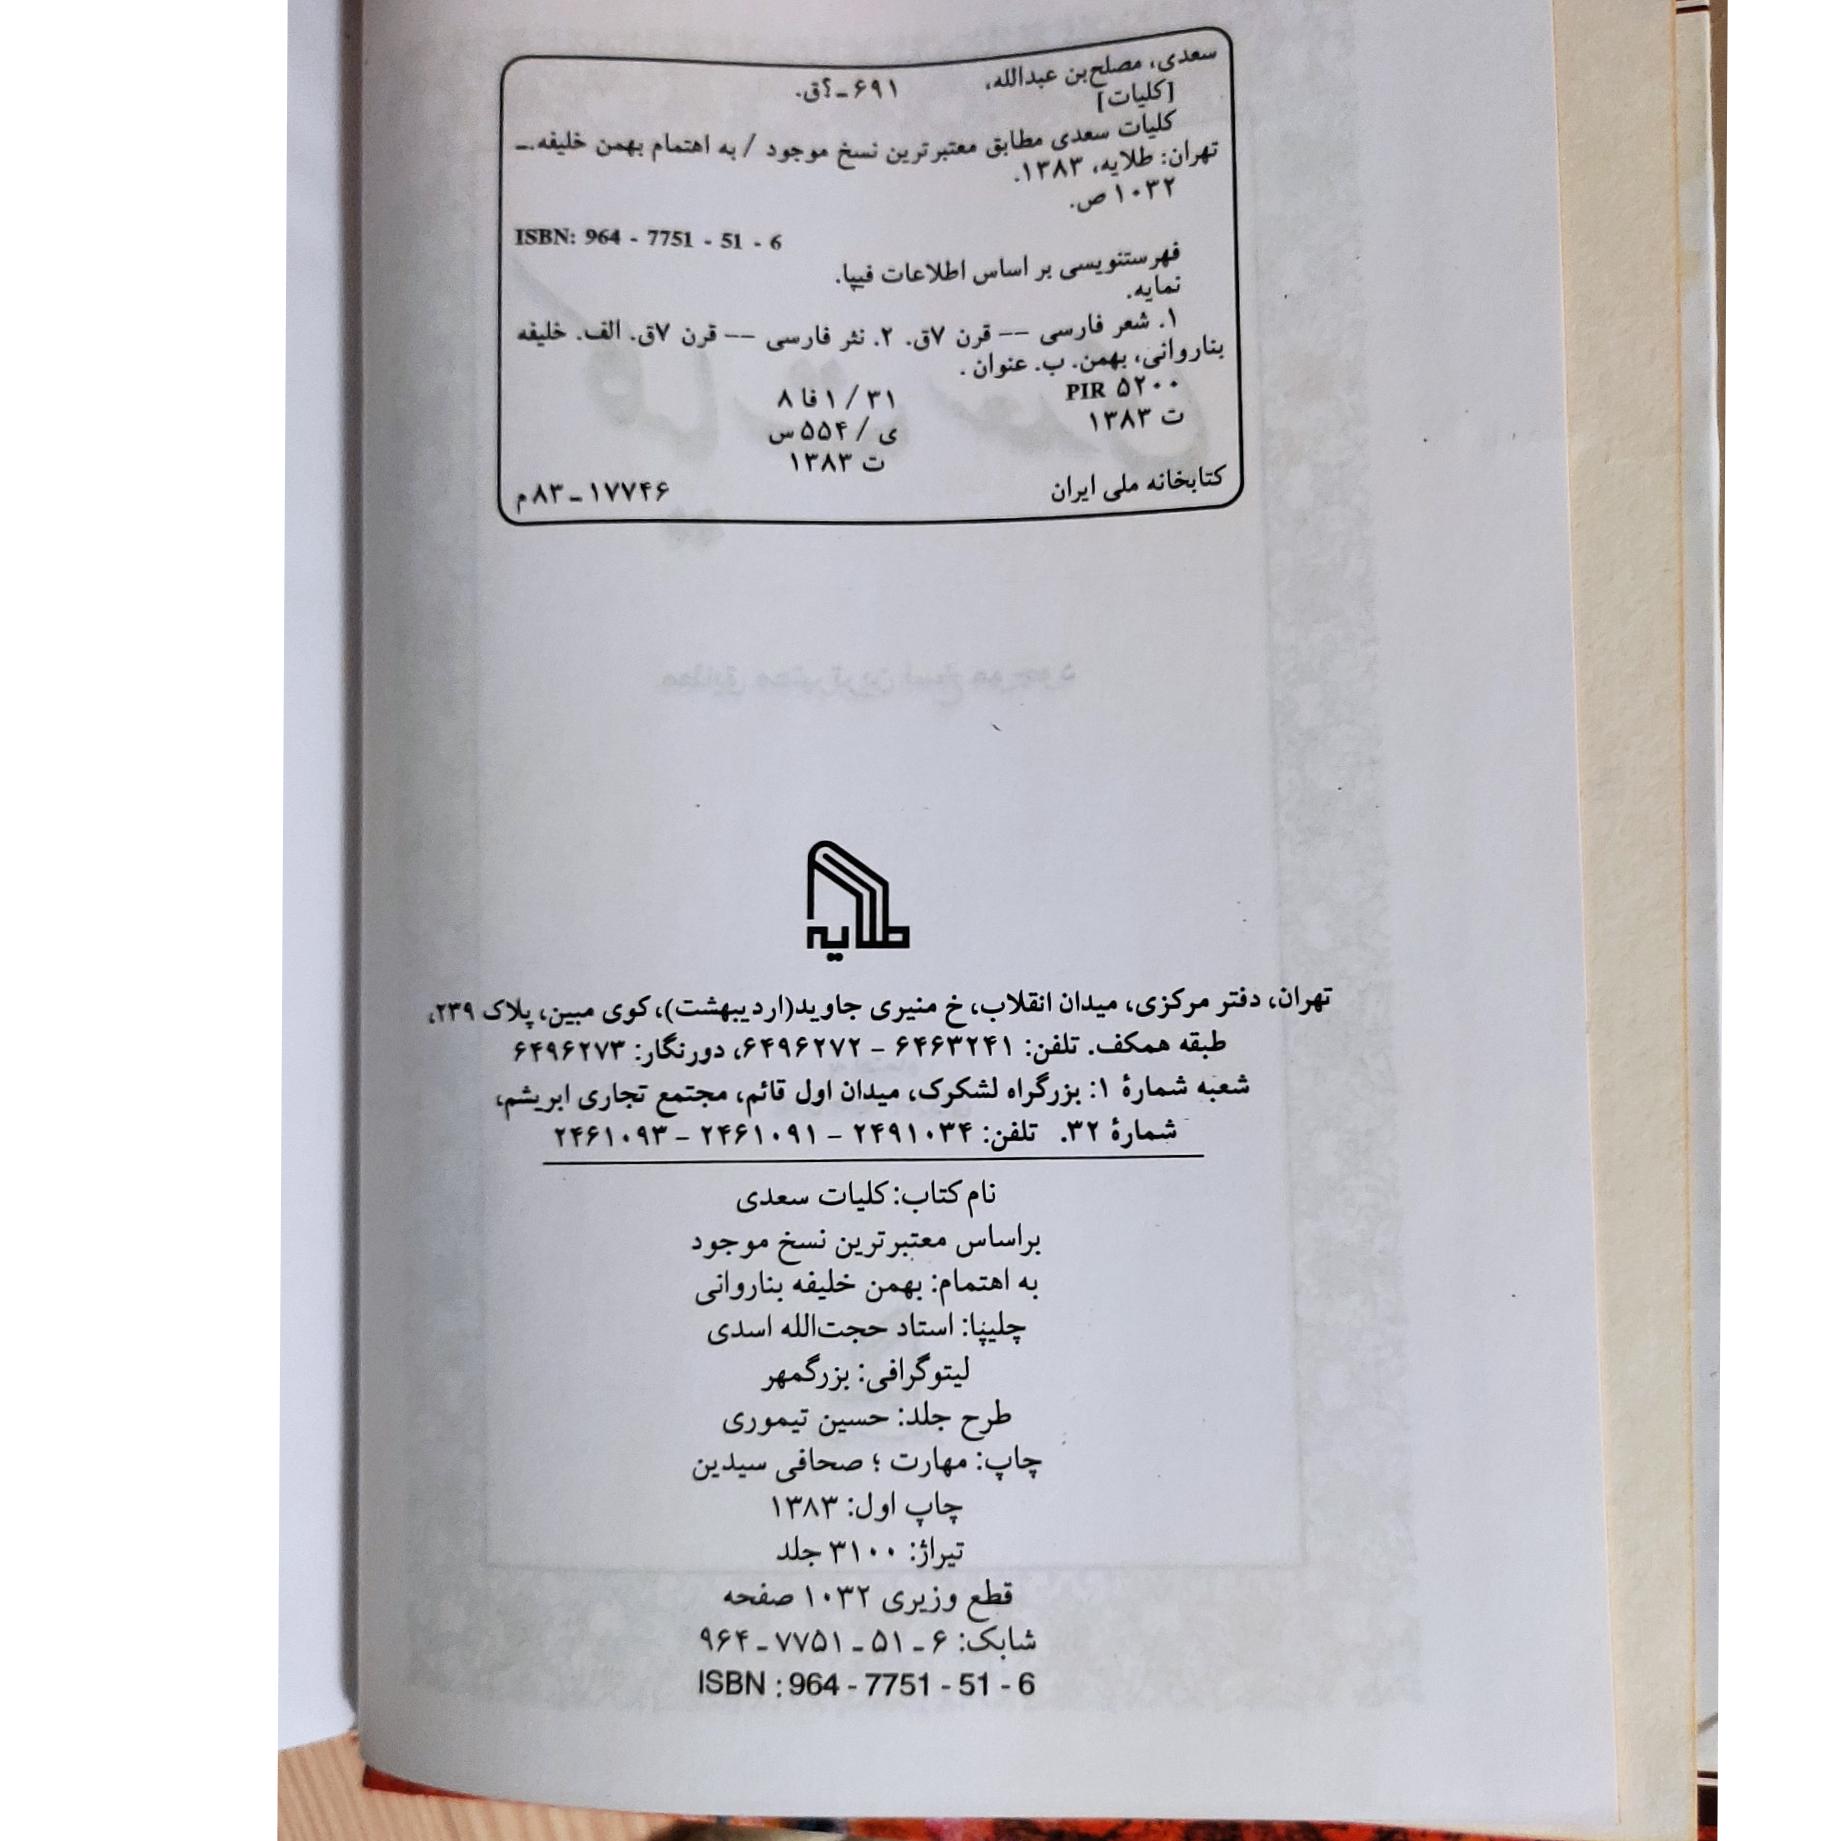 سعدی، مصلح‌بن عبدالله، ۶۹۱-؟ق.
[کلیات]
کلیات سعدی مطابق معتبرترین نسخ موجود / به اهتمام بهمن خلیفه.ـ
تهران: طلایه، ۱۳۸۳.
۱۰۳۲ ص.
ISBN: 964 - 7751 - 51 - 6
فهرستنویسی بر اساس اطلاعات فیپا.
نمایه.
۱. شعر فارسی -- قرن ۷ق. ۲. نثر فارسی -- قرن ۷ق. الف. خلیفه
بناروانی، بهمن. ب. عنوان .
PIR ۵۲۰۰ ۳۱ / ۱ فا ۸
ت ۱۳۸۳ ی / ۵۵۴ س
ت ۱۳۸۳
کتابخانه ملی ایران ۱۷۷۴۶ ـ ۸۳ م
طلایه
تهران، دفتر مرکزی، میدان انقلاب، خ منیری جاوید(اردیبهشت)، کوی مبین، پلاک ۲۳۹،
طبقه همکف. تلفن: ۶۴۶۳۲۴۱ - ۶۴۹۶۲۷۲، دورنگار: ۶۴۹۶۲۷۳
شعبه شمارهٔ ۱: بزرگراه لشکرک، میدان اول قائم، مجتمع تجاری ابریشم،
شمارهٔ ۳۲. تلفن: ۲۴۹۱۰۳۴ - ۲۴۶۱۰۹۱ - ۲۴۶۱۰۹۳
نام کتاب: کلیات سعدی
براساس معتبرترین نسخ موجود
به اهتمام: بهمن خلیفه بناروانی
چلیپا: استاد حجت‌الله اسدی
لیتوگرافی: بزرگمهر
طرح جلد: حسین تیموری
چاپ: مهارت ؛ صحافی سیدین
چاپ اول: ۱۳۸۳
تیراژ: ۳۱۰۰ جلد
قطع وزیری ۱۰۳۲ صفحه
شابک: ۶ ـ ۵۱ ـ ۷۷۵۱ ـ ۹۶۴
ISBN : 964 - 7751 - 51 - 6